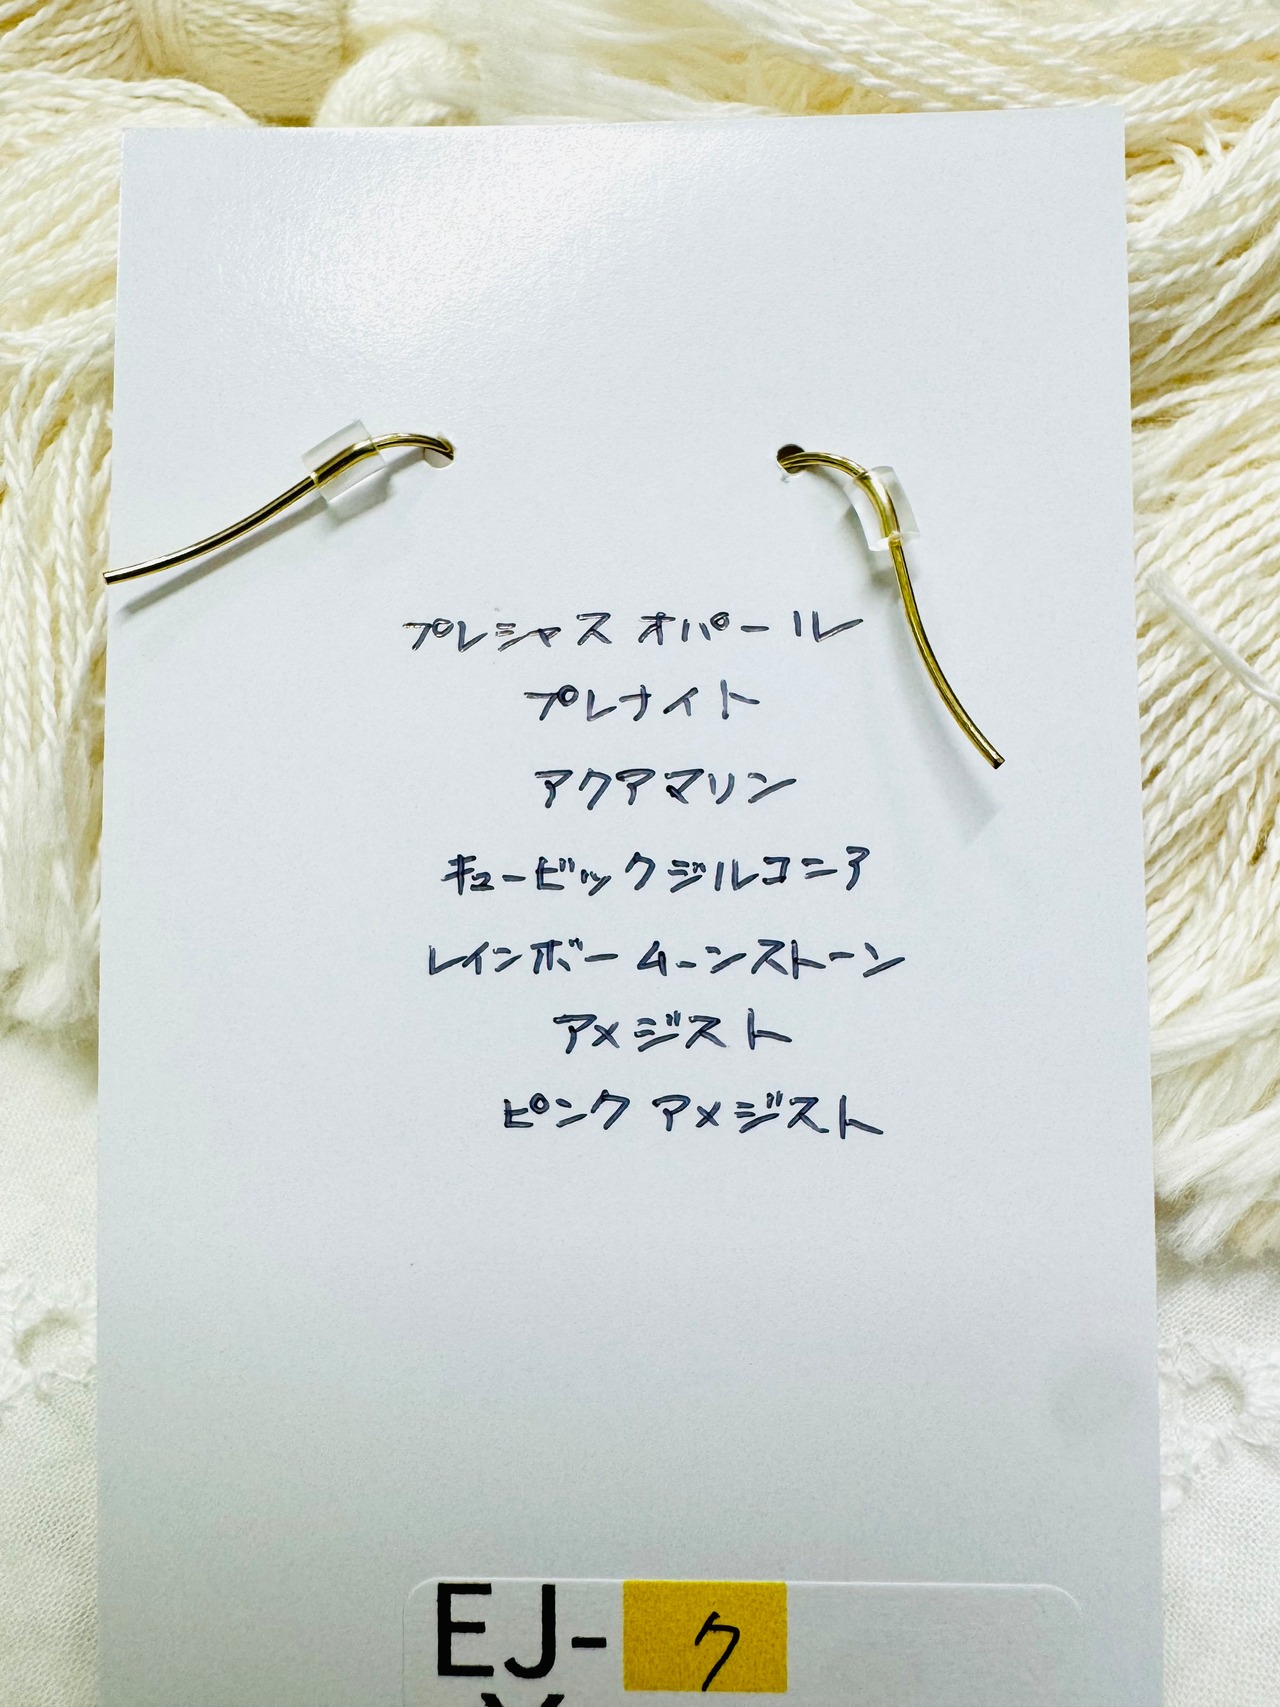 プレシャス オパール
プレナイト
アクアマリン
キュービックジルコニア
レインボー ムーンストーン
アメジスト
ピンク アメジスト
EJ-ク